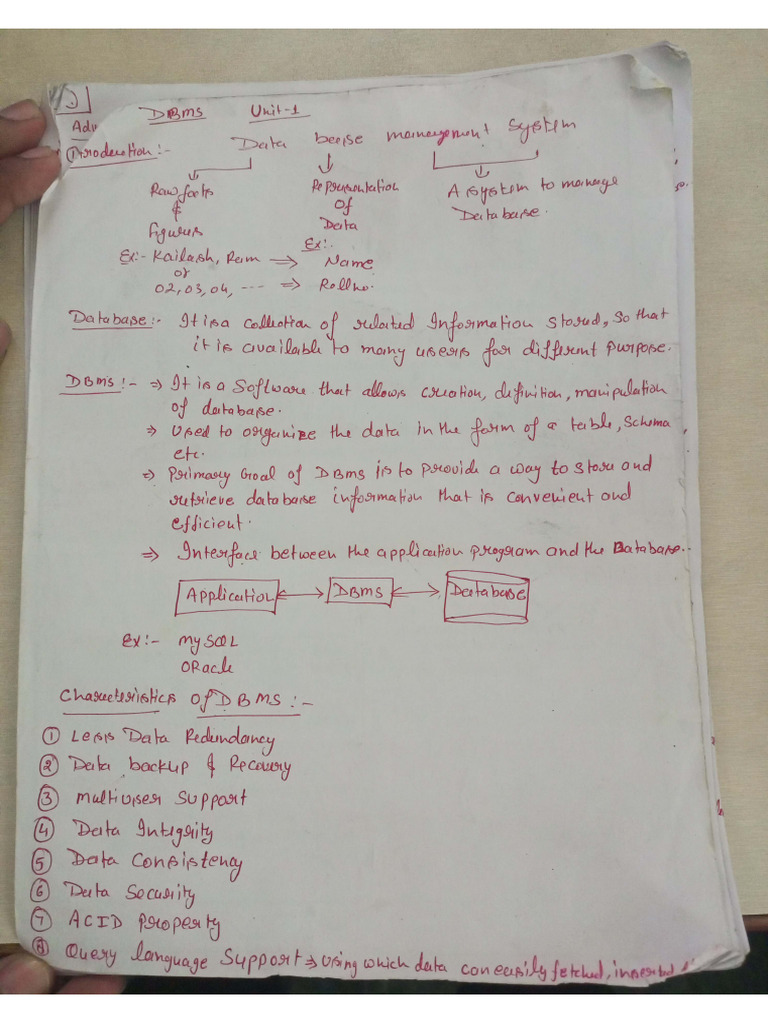 DBMS Unit-1
Adv
Introduction :- Data base management system
Raw facts & figures
Representation of Data
A system to manage Database.
Ex:- Kailash, Ram ⇒ Ex:- Name
or
02, 03, 04, --- ⇒ Rollno.
Database :- It is a collection of related Information stored, so that
it is available to many users for different purpose.
DBMS :- ⇒ It is a software that allows creation, definition, manipulation
of database.
⇒ Used to organize the data in the form of a table, schema
etc.
⇒ Primary Goal of DBMS is to provide a way to store and
retrieve database information that is convenient and
efficient.
⇒ Interface between the application program and the Database..
Application DBMS Database
Ex:- MySQL
ORacle
Characteristics of DBMS :-
① Less Data Redundancy
② Data backup & Recovery
③ Multiuser Support
④ Data Integrity
⑤ Data Consistency
⑥ Data Security
⑦ ACID Property
⑧ Query language Support ⇒ Using which data can easily fetched, inserted